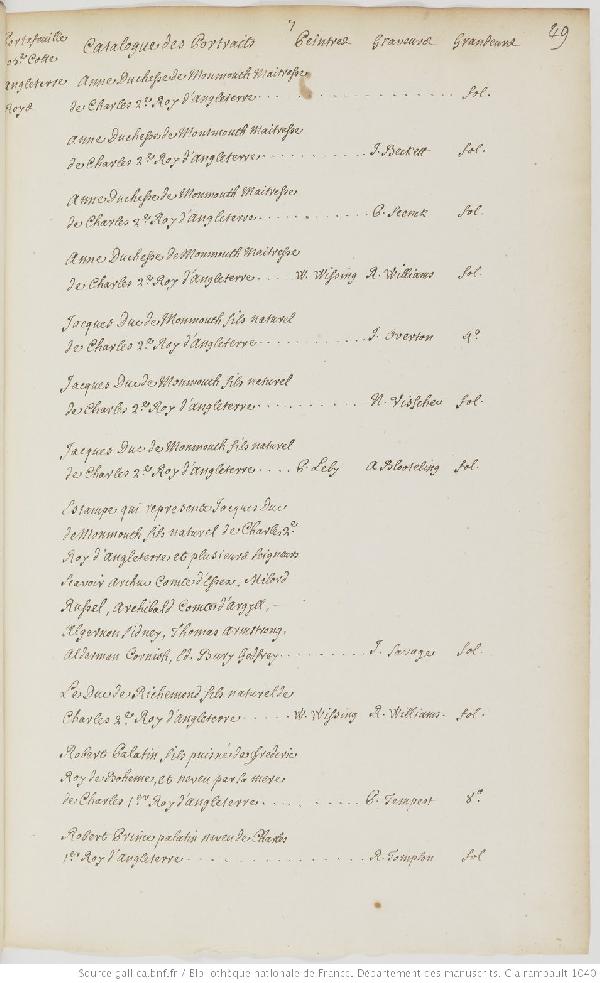 7
49
Portefeuille Catalogue des Portraits Peintres Graveurs Grandeurs
Cotte
Angleterre Anne Duchesse de Monmouth Maitresse
Roys de Charles 2.e Roy d'Angleterre . . . . . . . . . . . . . . . . fol.
Anne Duchesse de Monmouth Maitresse
de Charles 2.e Roy d'Angleterre . . . . . . . . . . J. Beckett fol.
Anne Duchesse de Monmouth Maitresse
de Charles 2.e Roy d'Angleterre . . . . . . . . . . fol.
Anne Duchesse de Monmouth Maitresse
de Charles 2.e Roy d'Angleterre . . . . W. Wissing R. Williams fol.
Jacques Duc de Monmouth fils naturel
de Charles 2.e Roy d'Angleterre . . . . . . . . . . J. Overton 4.o
Jacques Duc de Monmouth fils naturel
de Charles 2.e Roy d'Angleterre . . . . . . . . . . N. Visscher fol.
Jacques Duc de Monmouth fils naturel
de Charles 2.e Roy d'Angleterre . . . . P. Lely A Blooteling fol.
Estampe qui represente Jacques Duc
de Monmouth fils naturel de Charles 2.e
Roy d'Angleterre et plusieurs Seigneurs
Scavoir Arthur Comte d'Essex, Milord
Russel, Archibald Comte d'Argyll, –
Algernon Sidney, Thomas Armstrong,
Alderman Cornish, Ed. Bury Godfrey . . . . . . . . J. Savage fol.
Le Duc de Richemond fils naturel de
Charles 2.e Roy d'Angleterre . . . . . W. Wissing R. Williams fol.
Robert Palatin fils puisné de Frederic
Roy de Boheme, et neveu par sa mere
de Charles 1.er Roy d'Angleterre . . . . . . . . . . P. Tempest 8.o
Robert Prince palatin neveu de Charles
1.er Roy d'Angleterre . . . . . . . . . . . . . . . R. Tompson fol
Source gallica.bnf.fr / Bibliothèque nationale de France. Département des manuscrits. Clairambault 1040